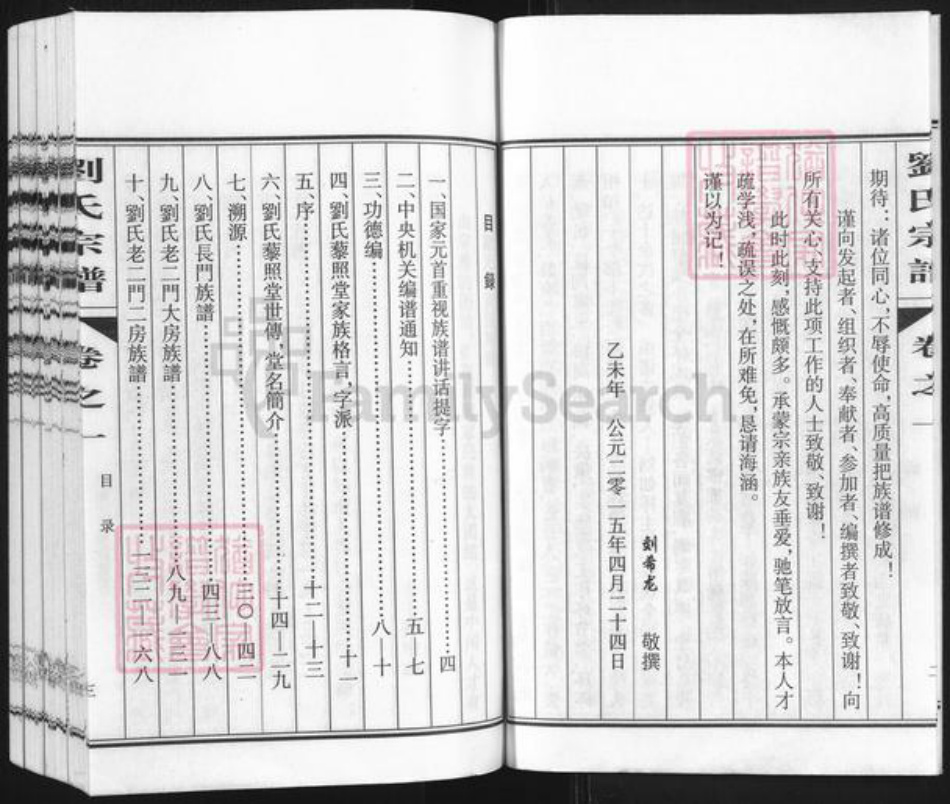 劉氏宗譜
卷之一
期待：诸位同心，不辱使命，高质量把族谱修成！
谨向发起者、组织者、奉献者、参加者、编撰者致敬、致谢！向
所有关心、支持此项工作的人士致敬、致谢！
此时此刻，感慨颇多。承蒙宗亲族友垂爱，驰笔放言。本人才
疏学浅，疏误之处，在所难免，恳请海涵。
谨以为记！
刘希龙 敬撰
乙未年 公元二零一五年四月二十四日
目録
一、国家元首重视族谱讲话提字……四
二、中央机关编谱通知……五—七
三、功德编……八—十
四、劉氏藜照堂家族格言，字派……十一
五、序……十二—十三
六、劉氏藜照堂世傳，堂名簡介……十四—二九
七、溯源……三〇—四二
八、劉氏長門族譜……四三—八八
九、劉氏老二門大房族譜……八九—一三一
十、劉氏老二門二房族譜……一三二—一六八
劉氏宗譜
卷之一
目录
三
FamilySearch